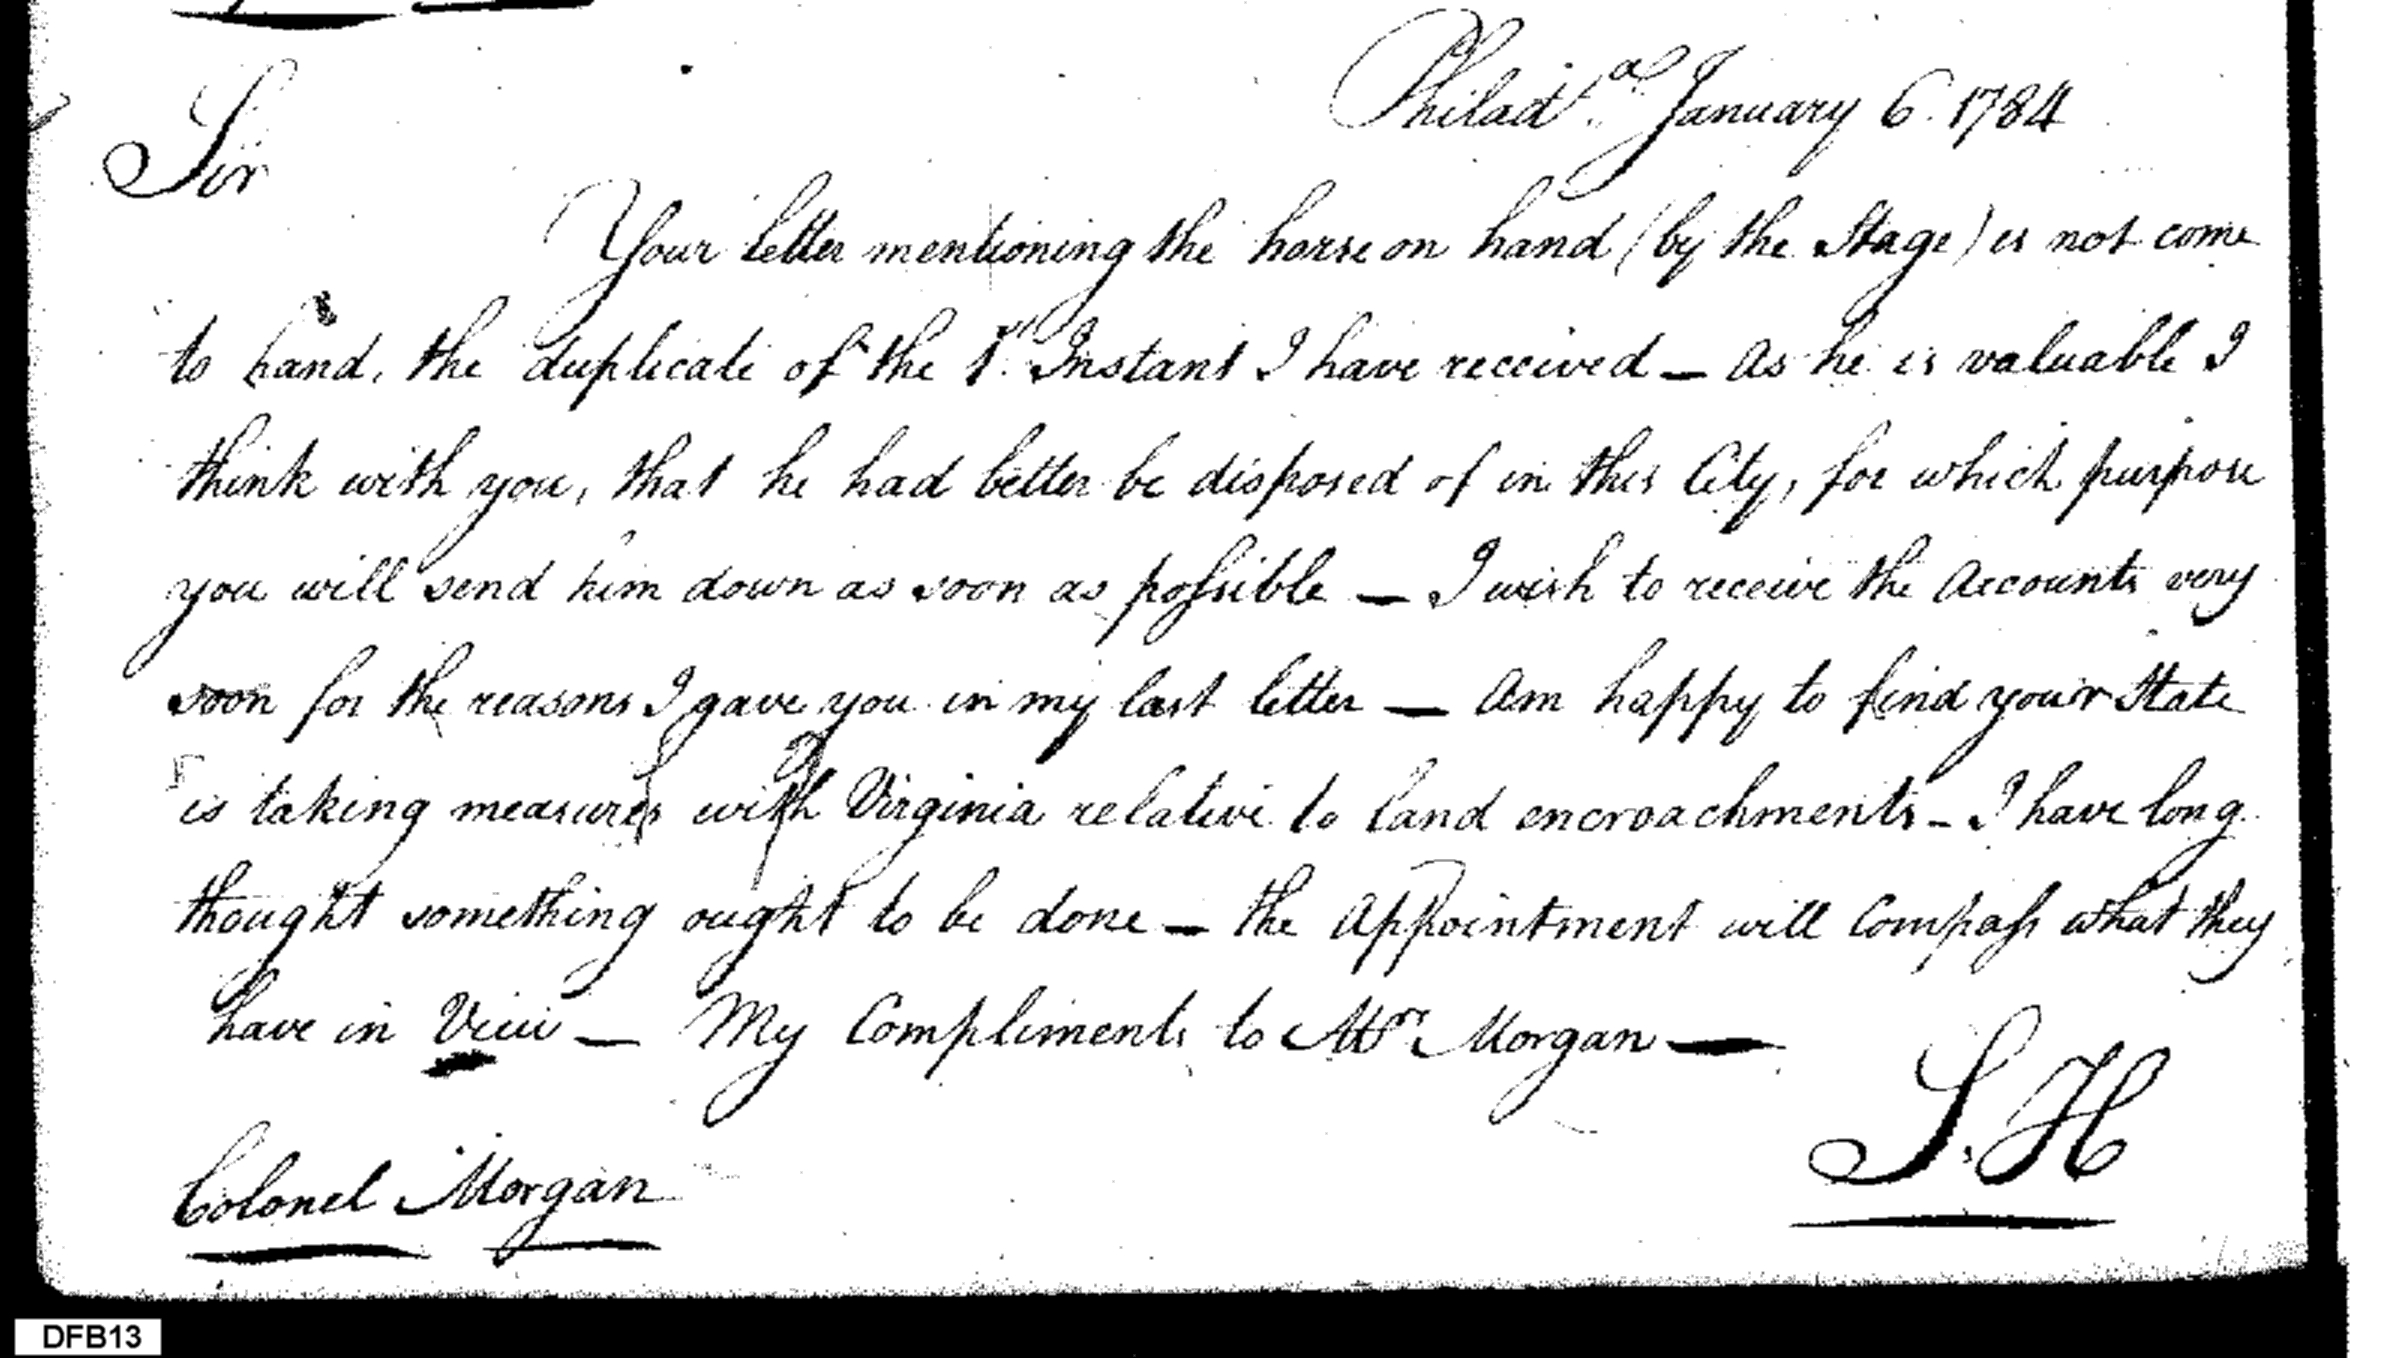 Philad.a January 6. 1784
Sir
Your letter mentioning the horse on hand (by the Stage) is not come
to hand, the duplicate of the 1st Instant I have received – As he is valuable I
think with you, that he had better be disposed of in this City, for which purpose
you will send him down as soon as possible – I wish to receive the Accounts very
soon for the reasons I gave you in my last letter – Am happy to find your State
is taking measures with Virginia relative to land encroachments – I have long
thought something ought to be done – the Appointment will Compass what they
have in View – My Compliments to Mrs Morgan –
S. H
Colonel Morgan
DFB13